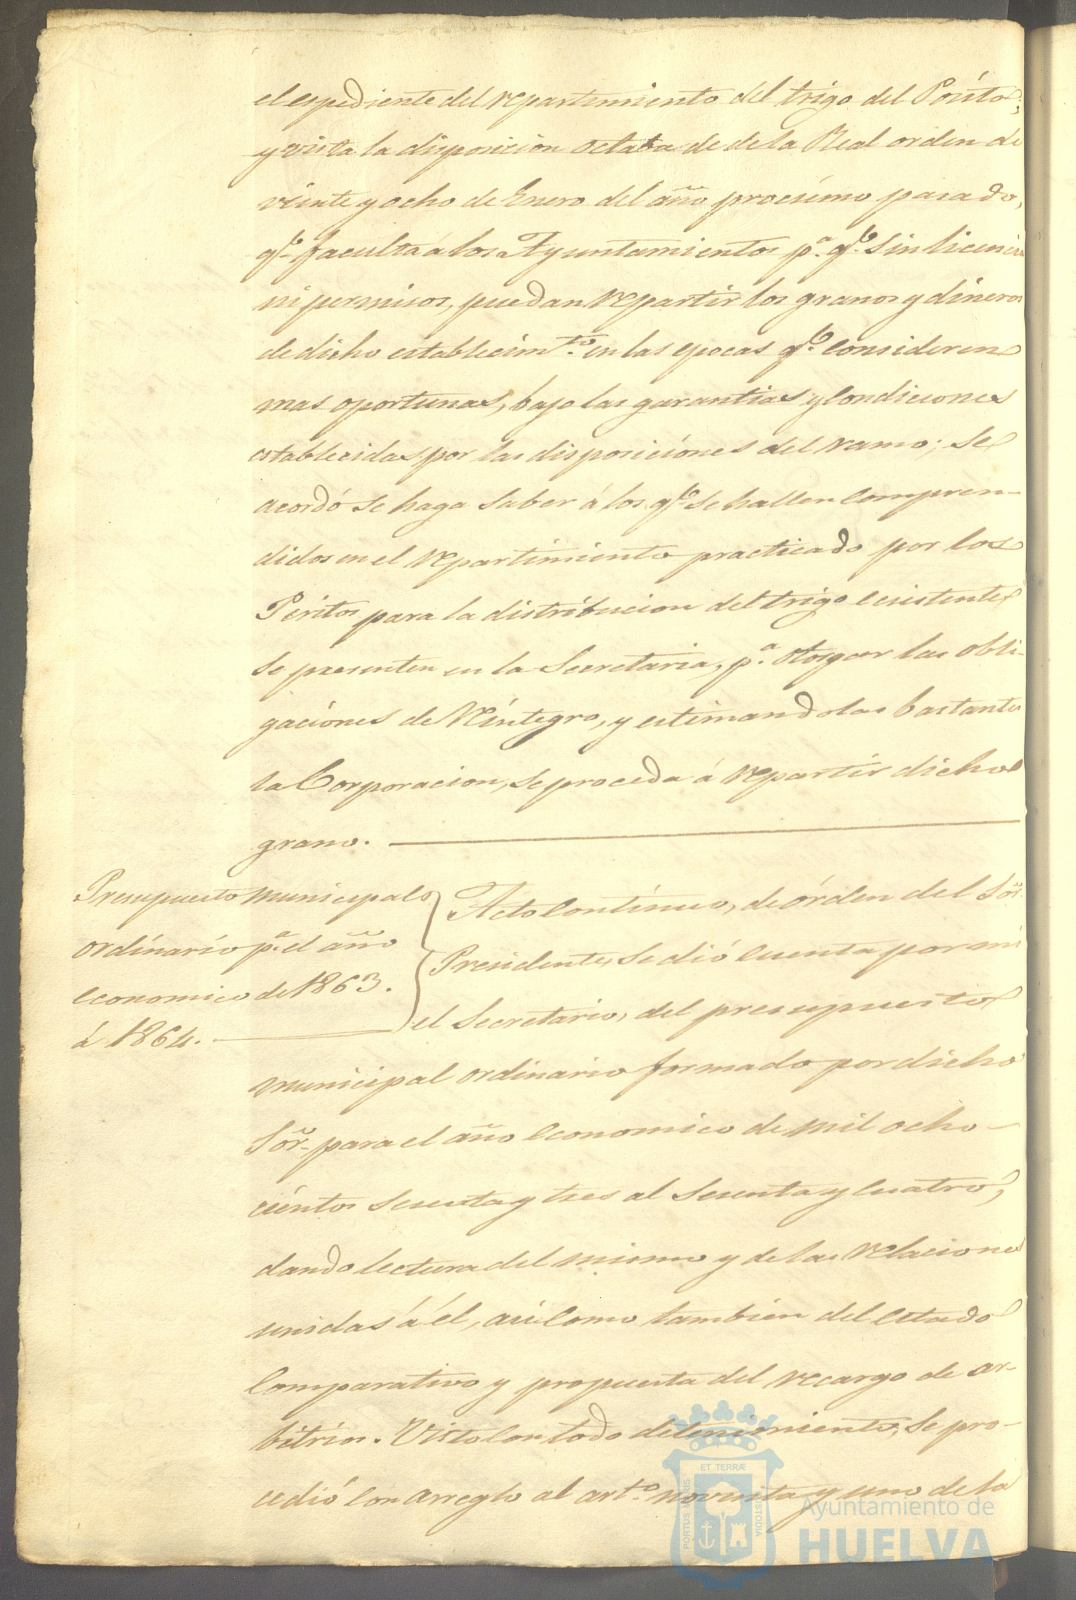 el espediente del repartimiento del trigo del Pósito;
y vista la disposicion octaba de de la Real orden de
viinte y ocho de Enero del año procsimo pasado,
qᵉ. faculta á los Ayuntamientos pᵃ. qᵉ. sin licencia
ni permisos, puedan repartir los granos y dineros
de dicho establecimᵗᵒ. en las epocas qᵉ. consideren
mas oportunas, bajo las garantias y condiciones
establecidas por las disposiciones del ramo; se
acordó se haga saber á los qᵉ. se hallen compren-
didos en el repartimiento practicado por los
Peritos para la distribucion del trigo ecsistente
se presenten en la Secretaria, pᵃ. otorgar las obli-
gaciones de reintegro, y estimandolas bastantes
la Corporacion, se proceda á repartir dicho
grano.
Presupuesto municipal
ordinario pᵃ. el año
economico de 1863.
á 1864.
Acto contínuo, de órden del Sor.
Presidente, se dió cuenta por mi
el Secretario, del presupuesto
municipal ordinario formado por dicho
Sor. para el año economico de mil ocho-
cientos sesenta y tres al sesenta y cuatro,
dando lectura del mismo y de las relaciones
unidas á él, asi como tambien del estado
comparativo y propuesta del recargo de ar-
bitrios. Visto con todo detenimiento, se pro-
cedió con arreglo al artᵒ. noventa y uno de la
ET TERRÆ
PORTUS MARIS
CUSTODIA
Ayuntamiento de
HUELVA